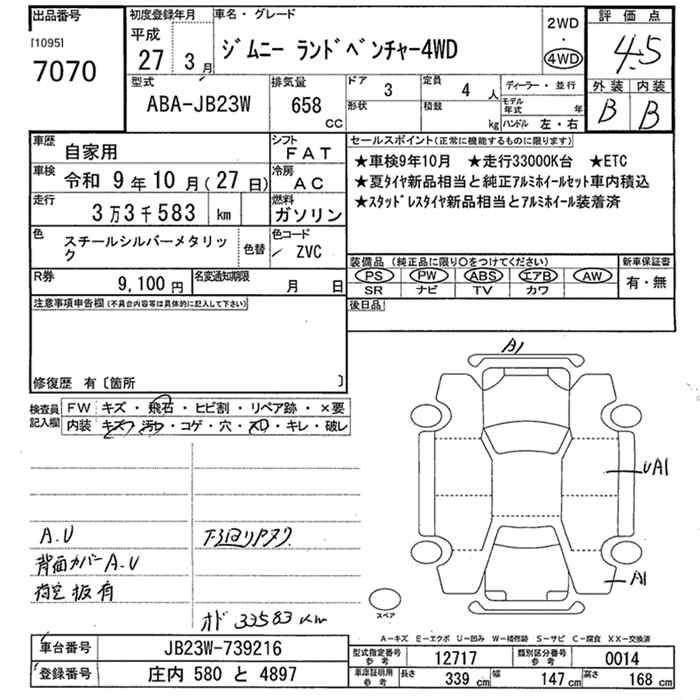 出品番号
[1095]
7070
初度登録年月
平成
27 3月
車名・グレード
ジムニー ランドベンチャー4WD
2WD
・
4WD
評価点
4.5
外装 内装
B B
型式
ABA-JB23W
排気量
658
CC
ドア
3
形状
定員
4 人
積載
kg
ディーラー・並行
モデル年式 年
ハンドル 左・右
車歴
自家用
シフト
FAT
車検
令和 9年10月(27日)
冷房
AC
走行
3万3千583 km
燃料
ガソリン
色
スチールシルバーメタリック
色替
色コード
ZVC
R券
9,100円
名変通知期限
月 日
セールスポイント(正常に機能するものに限ります)
★車検9年10月 ★走行33000K台 ★ETC
★夏タイヤ新品相当と純正アルミホイールセット車内積込
★スタッドレスタイヤ新品相当とアルミホイール装着済
装備品(純正品に限り○をつけてください)
PS PW ABS エアB AW
SR ナビ TV カワ
新車保証書
有・無
後日品
注意事項申告欄(不具合内容等は具体的に記入して下さい)
修復歴 有〔箇所 〕
検査員記入欄
FW キズ・飛石・ヒビ割・リペア跡・×要
内装 キズ・汚レ・コゲ・穴・スレ・キレ・破レ
A.U
背面カバーA.U
指定板有
下回りパスク
オド 33583km
A1
UA1
A1
スペア
A-キズ E-エクボ U-凹み W-補修跡 S-サビ C-腐食 XX-交換済
車台番号
JB23W-739216
登録番号
庄内 580 と 4897
型式指定番号
参考
12717
類別区分番号
参考
0014
車庫証明用
参考
長さ 339cm
幅 147cm
高さ 168cm